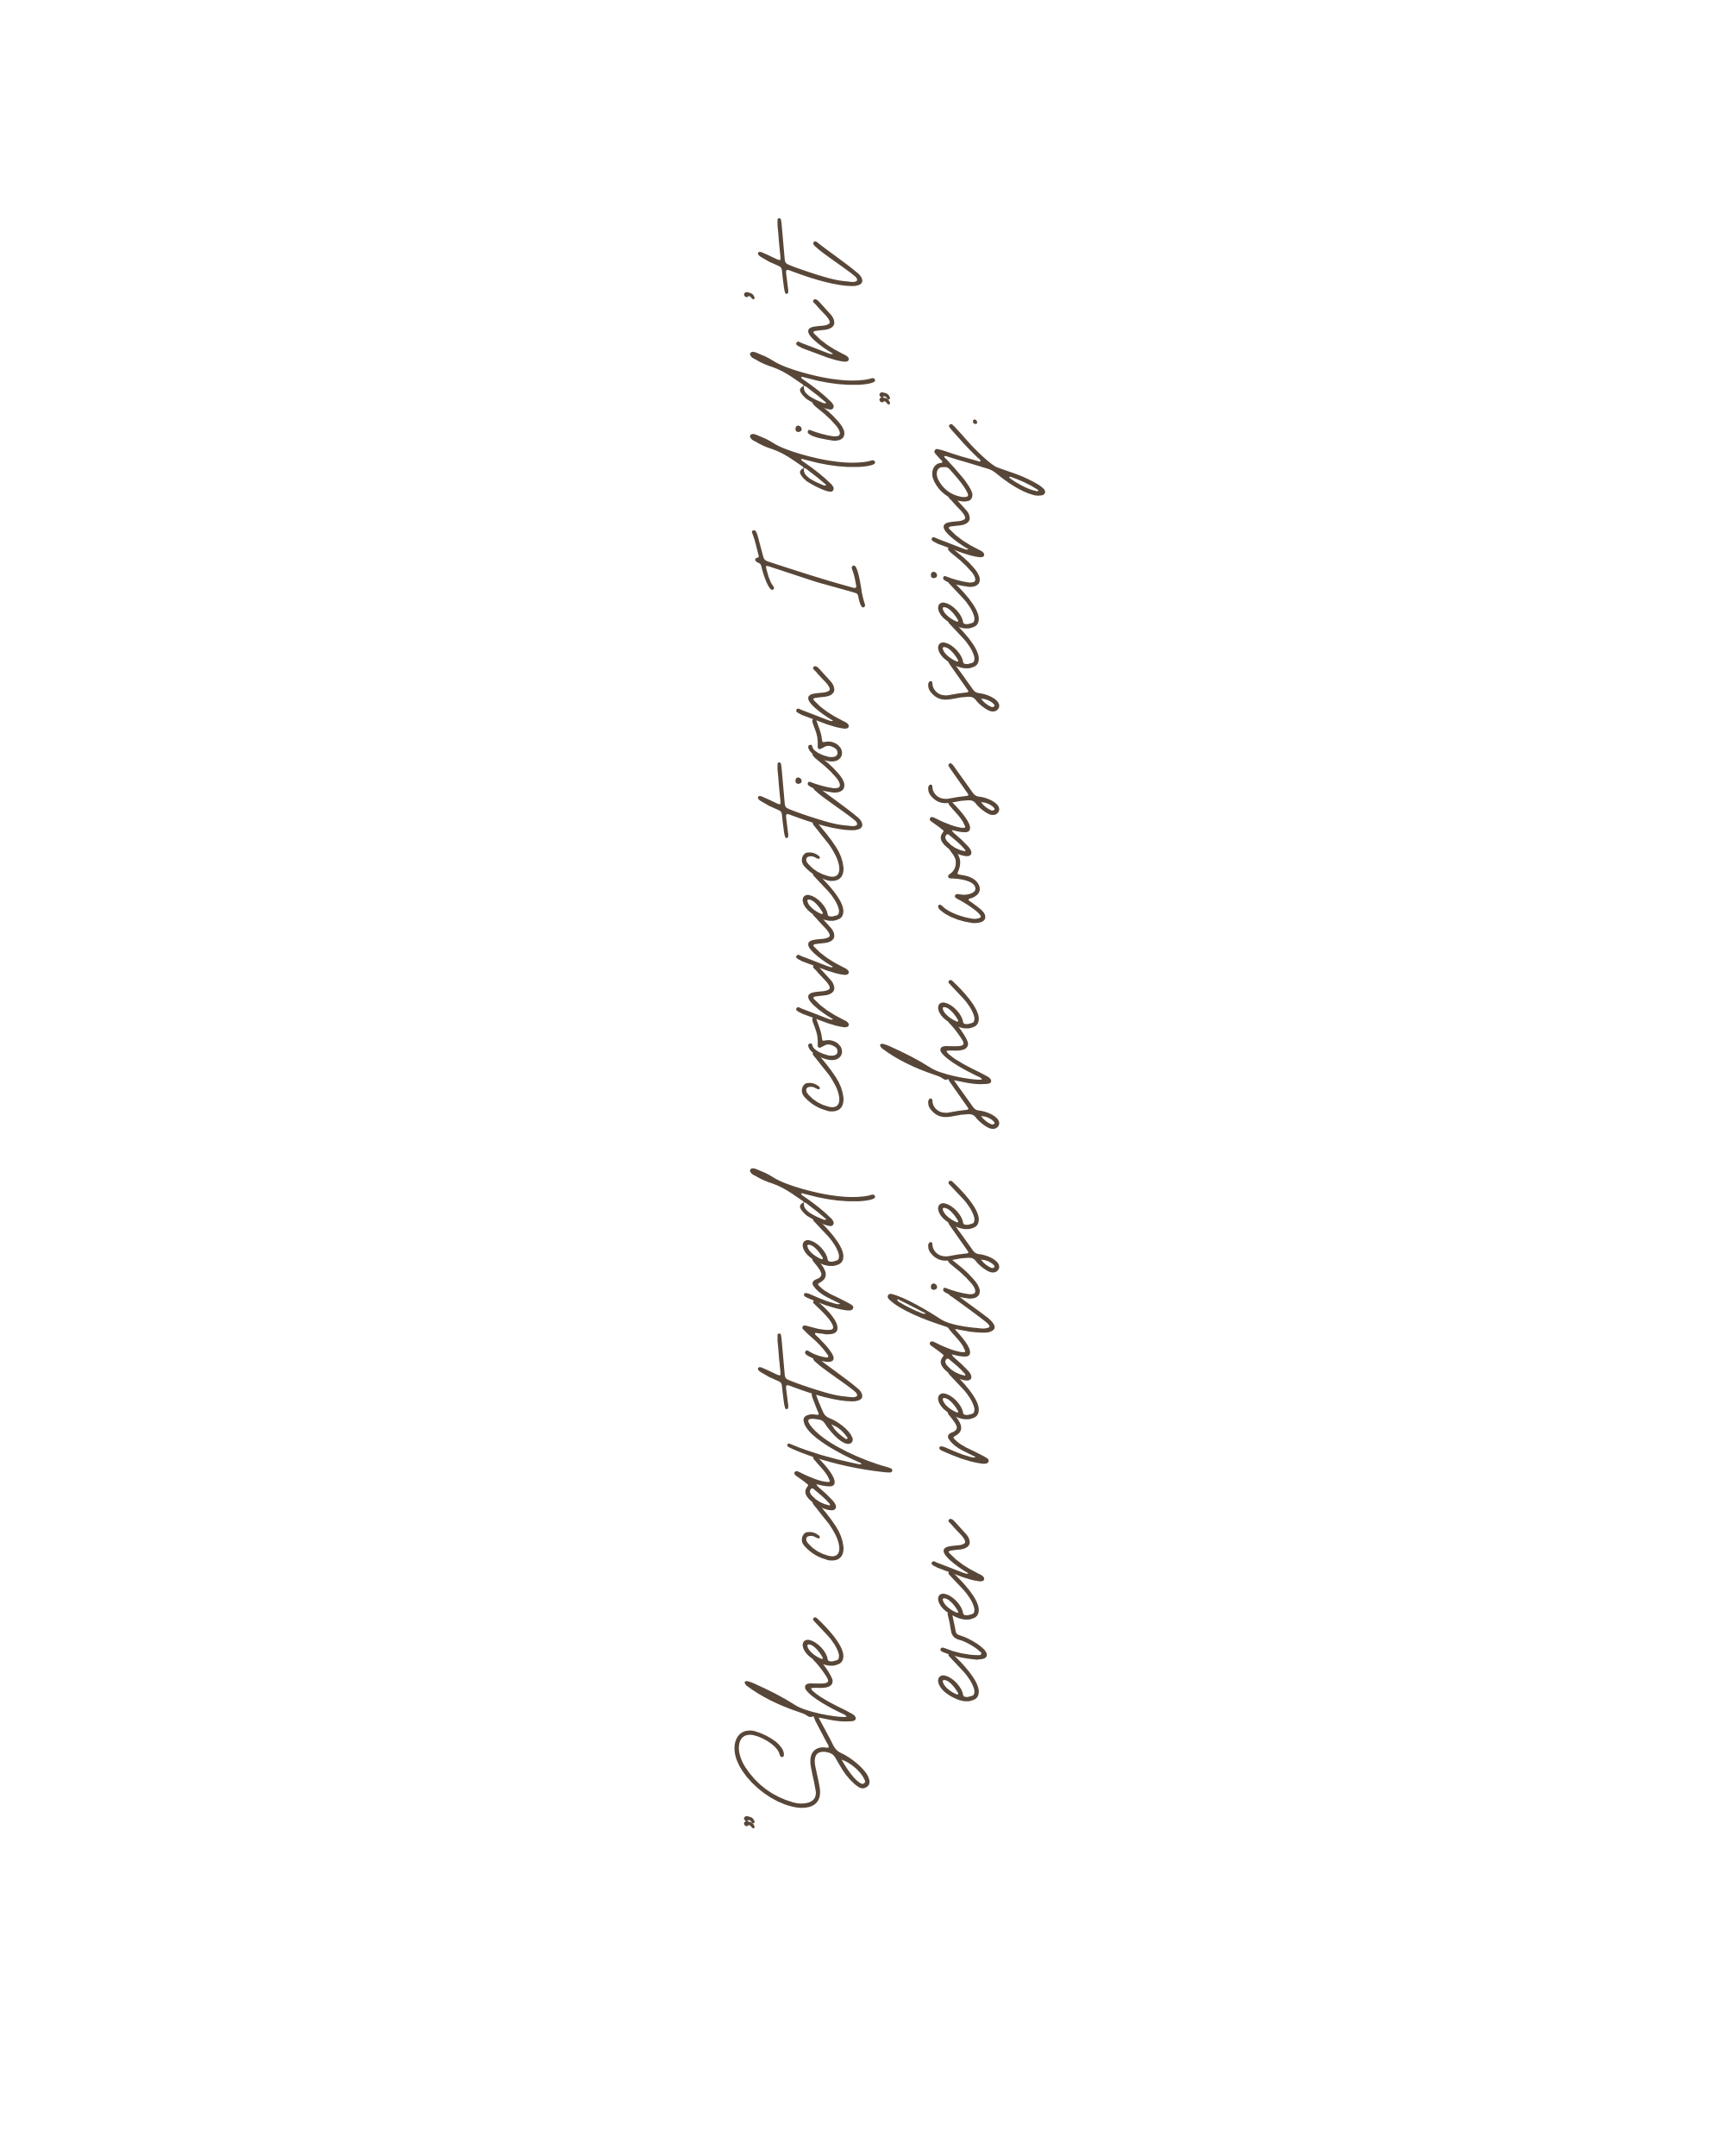 "She captured connection I didn't
even realise she was seeing."